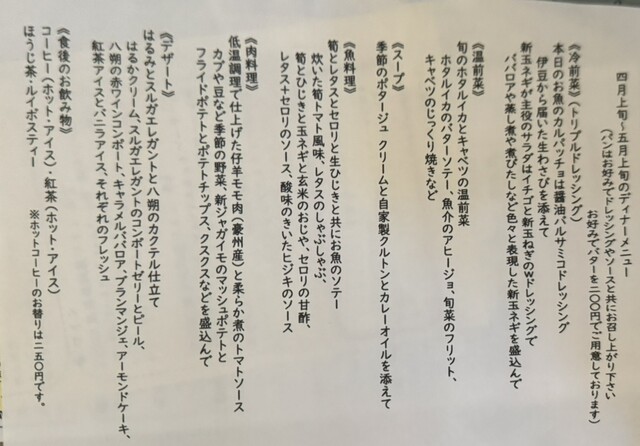 四月上旬～五月上旬のディナーメニュー
(パンはお好みでドレッシングやソースと共にお召し上がり下さい
お好みでバターを二〇〇円でご用意しております)
《冷前菜》(トリプルドレッシング)
本日のお魚のカルパッチョは醤油バルサミコドレッシング
伊豆から届いた生わさびを添えて
新玉ネギが主役のサラダはイチゴと新玉ねぎのWドレッシングで
ババロアや蒸し煮や煮びたしなど色々と表現した新玉ネギを盛込んで
《温前菜》
旬のホタルイカとキャベツの温前菜
ホタルイカのバターソテー、魚介のアヒージョ、旬菜のフリット、
キャベツのじっくり焼きなど
《スープ》
季節のポタージュ クリームと自家製クルトンとカレーオイルを添えて
《魚料理》
筍とレタスとセロリと生ひじきと共にお魚のソテー
炊いた筍トマト風味、レタスのしゃぶしゃぶ、
筍とひじきと玉ネギと玄米のおじや、セロリの甘酢、
レタス+セロリのソース、酸味のきいたヒジキのソース
《肉料理》
低温調理で仕上げた仔羊モモ肉(豪州産)と柔らか煮のトマトソース
カブや豆など季節の野菜、新ジャガイモのマッシュポテトと
フライドポテトとポテトチップス、クスクスなどを盛込んで
《デザート》
はるみとスルガエレガントと八朔のカクテル仕立て
はるかクリーム、スルガエレガントのコンポートゼリーとピール、
八朔の赤ワインコンポート、キャラメルババロア、ブランマンジェ、アーモンドケーキ、
紅茶アイスとバニラアイス、それぞれのフレッシュ
《食後のお飲み物》
コーヒー(ホット・アイス)・紅茶(ホット・アイス)
ほうじ茶・ルイボスティー
※ホットコーヒーのお替りは二五〇円です。